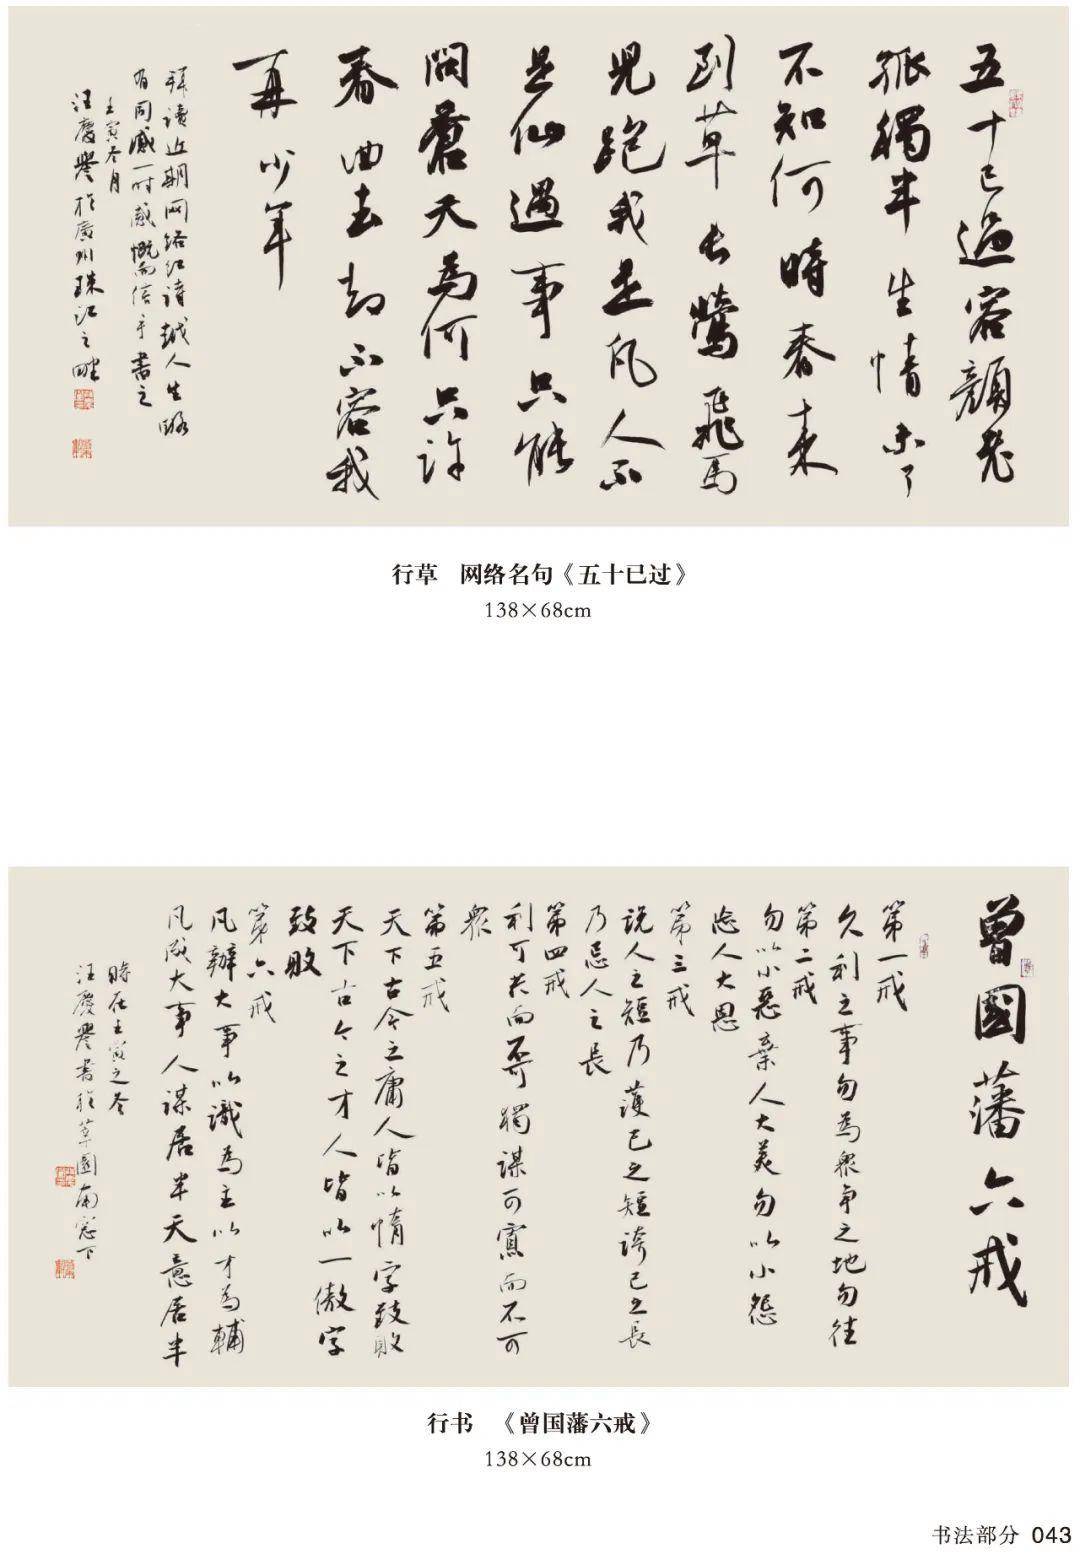 五十已過容顏老
孤獨半生情未了
不知何時春來
到草長鶯飛馬
兒跑我是凡人不
是仙遇事只能
問蒼天為何只許
春回去却不容我
再少年
拜讀近期网络红诗越人生路
有同感一时感慨而信手書之
壬寅冬月
汪慶譽於廣州珠江之畔
行草 网络名句《五十已过》
138×68cm
曾國藩六戒
第一戒
久利之事勿為眾争之地勿往
第二戒
勿以小惡棄人大美勿以小怨
忘人大恩
第三戒
说人之短乃護己之短誇己之長
乃忌人之長
第四戒
利可共而不可獨謀可寡而不可
眾
第五戒
天下古今之庸人皆以惰字致敗
天下古今之才人皆以一傲字
致敗
第六戒
凡辦大事以識為主以才為輔
凡成大事人謀居半天意居半
時在壬寅之冬
汪慶譽書於草園南窓下
行书 《曾国藩六戒》
138×68cm
书法部分 043